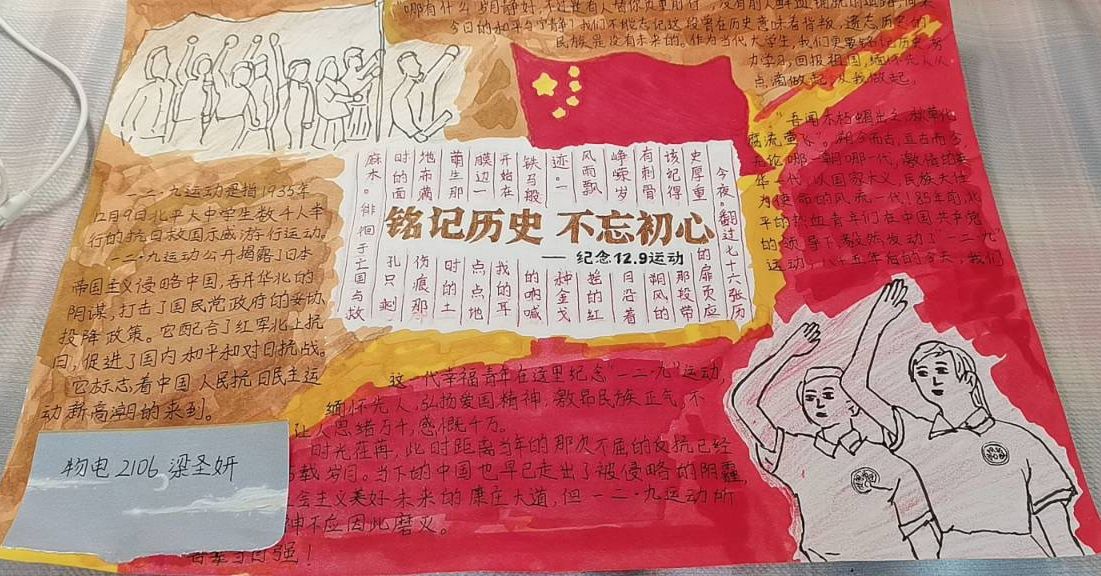 "哪有什么岁月静好,不过是有人替你负重前行"没有前人鲜血
今日的和平与宁静?我们不能忘记这段 历史意味着背叛,遗忘历史的
民族是没有未来的。作为当代大学生,我们更要铭记历史,努
力学习,回报祖国,缅怀先人,从
点滴做起,从我做起。
今夜。翻过七十六张历
史厚重的扉页应
该记得那投带
有刺骨朔风的
峥嵘岁月沿着
风雨飘 的红
迹。一种金戈
铁马般的呐喊
开始在我的耳
膜边一点点地
萌生那时的土
地布满伤痕那
时的面孔只剩
麻木。徘徊于亡国与救
铭记历史 不忘初心
—— 纪念12.9运动
一二·九运动是指1935年
12月9日北平大中学生数千人举
行的抗日救国示威游行运动,
一二·九运动公开揭露了日本
帝国主义侵略中国,吞并华北的
阴谋,打击了国民党政府的妥协
投降政策。它配合了红军北上抗
日,促进了国内和平和对日抗战。
它标志着中国人民抗日民主运
动新高潮的来到。
"吾闻木朽蝎出之,秋草化
腐流萤飞"。朔今而古,亘古而今
无论哪一朝哪一代,激信的英
华一代,以国家大义,民族大任
为使命的风流一代!85年前,北
平的热血青年们在中国共产党
的领导下毅然发动了"一二·九"
运动,八十五年后的今天,我们
这一代幸福青年在这里纪念"一二·九"运动,
缅怀先人,弘扬爱国精神,激昂民族正气,不
让人思绪万千,感慨千万。
时光荏苒,此时距离当年的那次不屈的反抗已经
载岁月。当下的中国也早已走出了被侵略的阴霾,
会主义美好未来的康庄大道,但一二·九运动所
神不应因此磨灭。
自强!
物电2106 梁圣妍